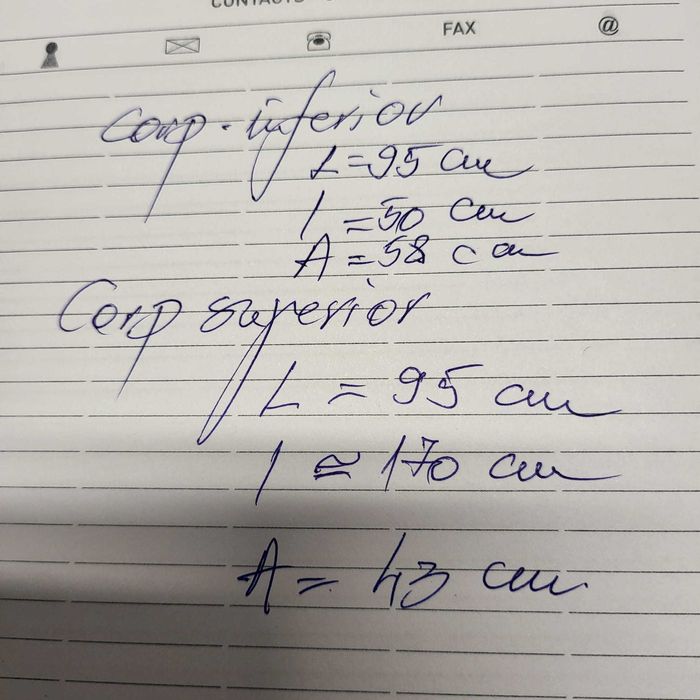 CONTACTS
FAX @
Corp. inferior
L = 95 cm
l = 50 cm
A = 58 cm
Corp superior
L = 95 cm
l ≅ 170 cm
A = 43 cm